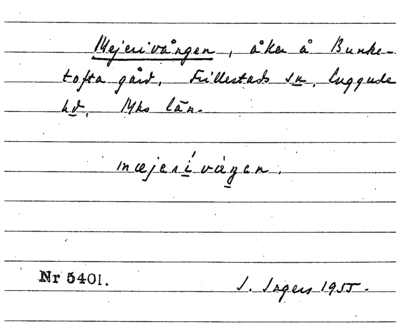 Mejerivången, åker å Bunke-
tofta gård, Frillestads sn, Luggude
hd, Mhs län.
mæjerívåŋen.
Nr 5401.
J. Ingers 1955.